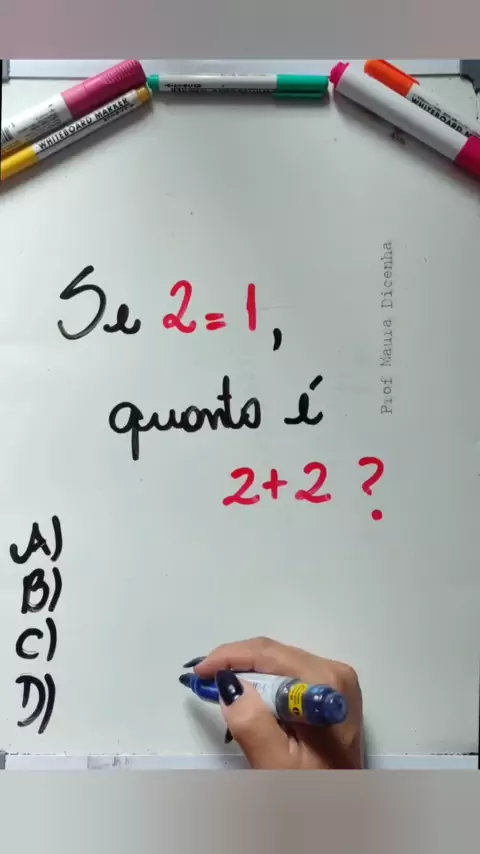 WHITEBOARD MARKER
WHITEBOARD MA
Se 2=1,
quanto é
2+2 ?
A)
B)
C)
D)
Prof Maura Dicenha